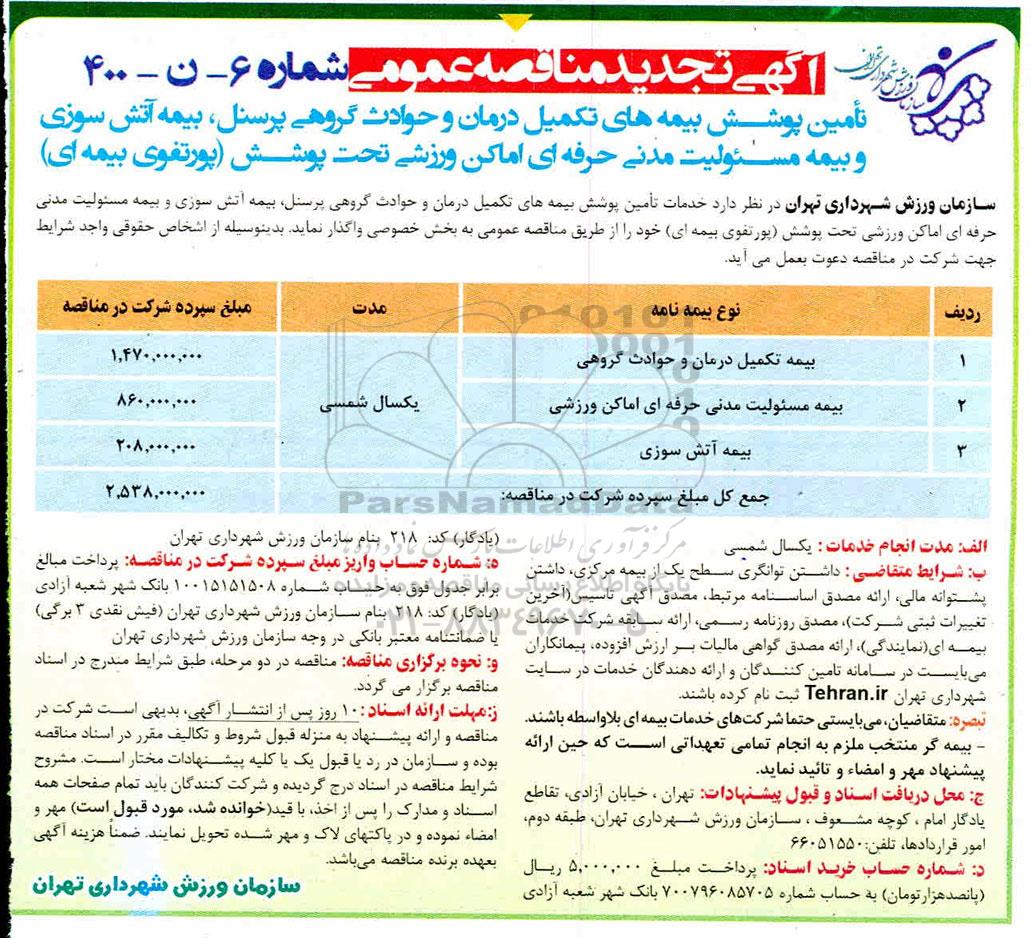 آگهی تجدید مناقصه عمومی شماره ۶- ن - ۴۰۰
سازمان ورزش شهرداری تهران
تأمین پوشش بیمه های تکمیل درمان و حوادث گروهی پرسنل، بیمه آتش سوزی
و بیمه مسئولیت مدنی حرفه ای اماکن ورزشی تحت پوشش (پورتفوی بیمه ای)
سازمان ورزش شهرداری تهران در نظر دارد خدمات تأمین پوشش بیمه های تکمیل درمان و حوادث گروهی پرسنل، بیمه آتش سوزی و بیمه مسئولیت مدنی
حرفه ای اماکن ورزشی تحت پوشش (پورتفوی بیمه ای) خود را از طریق مناقصه عمومی به بخش خصوصی واگذار نماید. بدینوسیله از اشخاص حقوقی واجد شرایط
جهت شرکت در مناقصه دعوت بعمل می آید.
ردیف نوع بیمه نامه مدت مبلغ سپرده شرکت در مناقصه
۱ بیمه تکمیل درمان و حوادث گروهی ۱,۴۷۰,۰۰۰,۰۰۰
۲ بیمه مسئولیت مدنی حرفه ای اماکن ورزشی یکسال شمسی ۸۶۰,۰۰۰,۰۰۰
۳ بیمه آتش سوزی ۲۰۸,۰۰۰,۰۰۰
جمع کل مبلغ سپرده شرکت در مناقصه: ۲,۵۳۸,۰۰۰,۰۰۰
الف: مدت انجام خدمات : یکسال شمسی
ب: شرایط متقاضی : داشتن توانگری سطح یک از بیمه مرکزی، داشتن
پشتوانه مالی، ارائه مصدق اساسنامه مرتبط، مصدق آگهی تأسیس(آخرین
تغییرات ثبتی شرکت)، مصدق روزنامه رسمی، ارائه سابقه شرکت خدمات
بیمه ای(نمایندگی)، ارائه مصدق گواهی مالیات بر ارزش افزوده، پیمانکاران
می‌بایست در سامانه تامین کنندگان و ارائه دهندگان خدمات در سایت
شهرداری تهران Tehran.ir ثبت نام کرده باشند.
تبصره: متقاضیان، می‌بایستی حتما شرکت‌های خدمات بیمه ای بلاواسطه باشند.
- بیمه گر منتخب ملزم به انجام تمامی تعهداتی است که حین ارائه
پیشنهاد مهر و امضاء و تائید نماید.
ج: محل دریافت اسناد و قبول پیشنهادات: تهران ، خیابان آزادی، تقاطع
یادگار امام ، کوچه مشعوف ، سازمان ورزش شهرداری تهران، طبقه دوم،
امور قراردادها، تلفن: ۶۶۰۵۱۵۵۰
د: شماره حساب خرید اسناد: پرداخت مبلغ ۵,۰۰۰,۰۰۰ ریال
(پانصدهزارتومان) به حساب شماره ۷۰۰۷۹۶۰۸۵۷۰۵ بانک شهر شعبه آزادی
(یادگار) کد: ۲۱۸ بنام سازمان ورزش شهرداری تهران
ه: شماره حساب واریز مبلغ سپرده شرکت در مناقصه: پرداخت مبالغ
برابر جدول فوق به حساب شماره ۱۰۰۱۵۱۵۱۵۰۸ بانک شهر شعبه آزادی
(یادگار) کد: ۲۱۸ بنام سازمان ورزش شهرداری تهران (فیش نقدی ۳ برگی)
یا ضمانتنامه معتبر بانکی در وجه سازمان ورزش شهرداری تهران
و: نحوه برگزاری مناقصه: مناقصه در دو مرحله، طبق شرایط مندرج در اسناد
مناقصه برگزار می گردد.
ز:مهلت ارائه اسناد :۱۰ روز پس از انتشار آگهی، بدیهی است شرکت در
مناقصه و ارائه پیشنهاد به منزله قبول شروط و تکالیف مقرر در اسناد مناقصه
بوده و سازمان در رد یا قبول یک یا کلیه پیشنهادات مختار است. مشروح
شرایط مناقصه در اسناد درج گردیده و شرکت کنندگان باید تمام صفحات همه
اسناد و مدارک را پس از اخذ، با قید(خوانده شد، مورد قبول است) مهر و
امضاء نموده و در پاکتهای لاک و مهر شده تحویل نمایند. ضمناً هزینه آگهی
بعهده برنده مناقصه می‌باشد.
سازمان ورزش شهرداری تهران
ParsNamadData
مرکز فرآوری اطلاعات پارس نماد داده ها
پایگاه اطلاع رسانی مناقصه و مزایده
۰۲۱-۸۸۳۴۹۶۷۰-۵